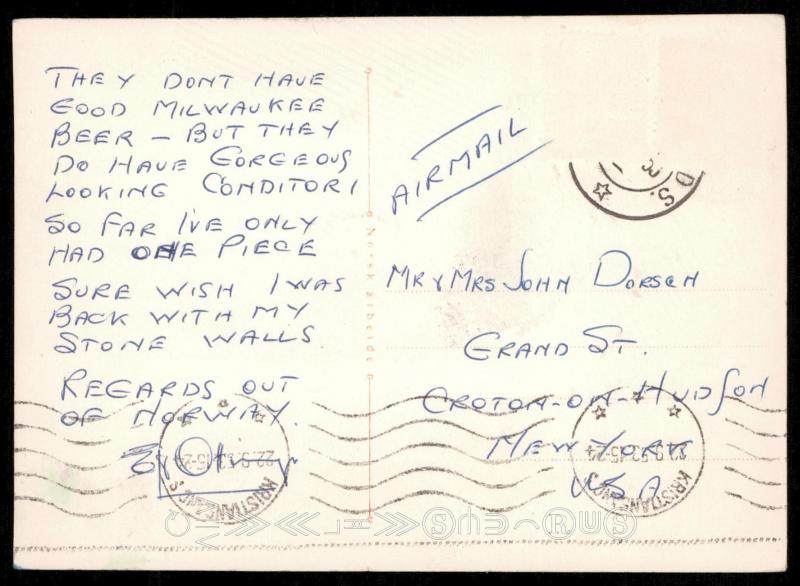 THEY DONT HAVE
GOOD MILWAUKEE
BEER – BUT THEY
DO HAVE GORGEOUS
LOOKING CONDITORI
SO FAR I'VE ONLY
HAD ONE PIECE
SURE WISH I WAS
BACK WITH MY
STONE WALLS.
REGARDS OUT
OF NORWAY.
AIRMAIL
MR & MRS JOHN DORSEN
GRAND ST.
CROTON-ON-HUDSON
NEW YORK
USA
Norsk arbeide
KRISTIANSAND S
KRISTIANSAND S
D S.